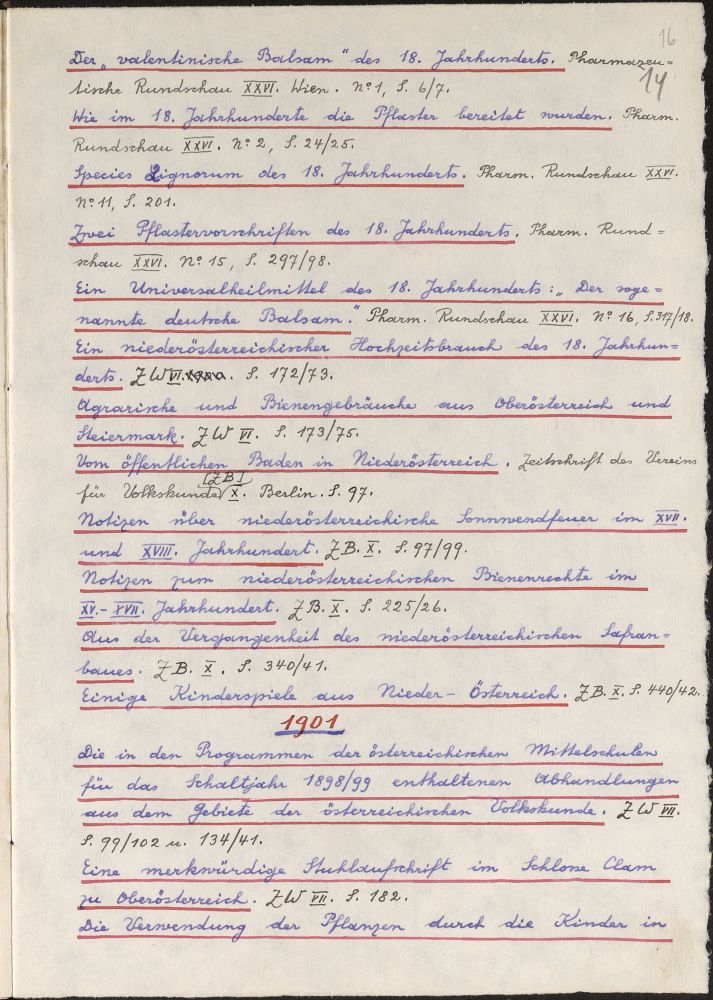 16
Der „valentinische Balsam" des 18. Jahrhunderts. Pharmazeu=
14
tische Rundschau XXVI. Wien. No 1, S. 6/7.
Wie im 18. Jahrhunderte die Pflaster bereitet wurden. Pharm.
Rundschau XXVI. No 2, S. 24/25.
Species Lignorum des 18. Jahrhunderts. Pharm. Rundschau XXVI.
No 11, S. 201.
Zwei Pflastervorschriften des 18. Jahrhunderts. Pharm. Rund=
schau XXVI. No 15, S. 297/98.
Ein Universalheilmittel des 18. Jahrhunderts: „Der soge=
nannte deutsche Balsam." Pharm. Rundschau XXVI. No 16, S. 317/18.
Ein niederösterreichischer Hochzeitsbrauch des 18. Jahrhun=
derts. ZW VI. S. 172/73.
Agrarische und Bienengebräuche aus Oberösterreich und
Steiermark. ZW VI. S. 173/75.
Vom öffentlichen Baden in Niederösterreich. Zeitschrift des Vereins
[ZB]
für Volkskunde X. Berlin. S. 97.
Notizen über niederösterreichische Sonnwendfeuer im XVII.
und XVIII. Jahrhundert. Z.B. X. S. 97/99.
Notizen zum niederösterreichischen Bienenrechte im
XV.-XVII. Jahrhundert. Z.B. X. S. 225/26.
Aus der Vergangenheit des niederösterreichischen Safran=
baues. Z.B. X. S. 340/41.
Einige Kinderspiele aus Nieder-Österreich. Z.B. X. S. 440/42.
1901
Die in den Programmen der österreichischen Mittelschulen
für das Schaltjahr 1898/99 enthaltenen Abhandlungen
aus dem Gebiete der österreichischen Volkskunde. ZW VII.
S. 99/102 u. 134/41.
Eine merkwürdige Stuhlaufschrift im Schlosse Clam
zu Oberösterreich. ZW VII. S. 182.
Die Verwendung der Pflanzen durch die Kinder in